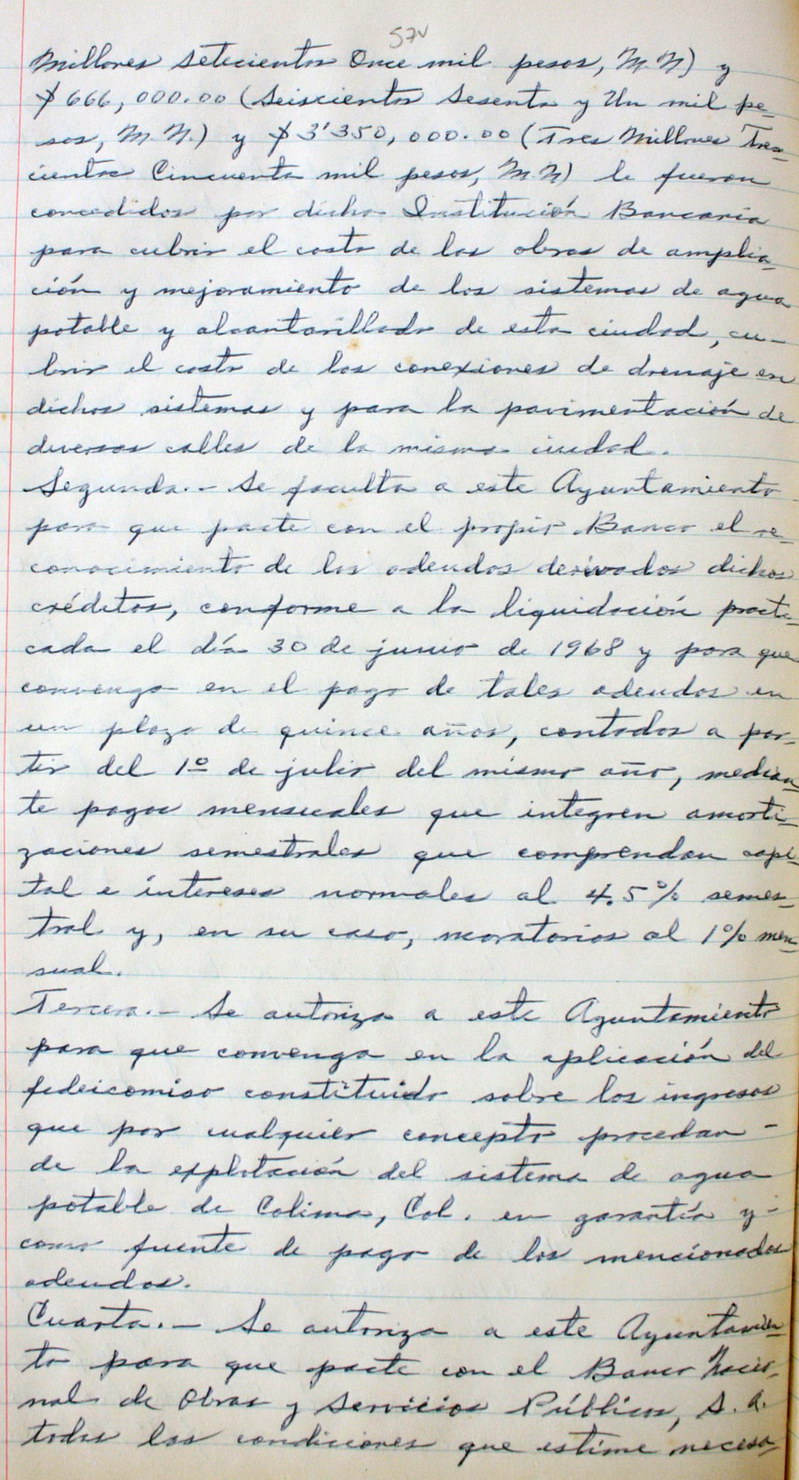 57v
Millones Setecientos Once mil pesos, M.N) y
$666,000.00 (Seiscientos Sesenta y Un mil pe-
sos, M.N.) y $3'350,000.00 (Tres Millones Tres-
cientos Cincuenta mil pesos, M.N) le fueron
concedidos por dicha Institución Bancaria
para cubrir el costo de las obras de amplia-
ción y mejoramiento de los sistemas de agua
potable y alcantarillado de esta ciudad, cu-
brir el costo de las conexiones de drenaje en
dichos sistemas y para la pavimentación de
diversas calles de la misma ciudad.
Segunda.- Se faculta a este Ayuntamiento
para que pacte con el propio Banco el re-
conocimiento de los adeudos derivados dichos
créditos, conforme a la liquidación practi-
cada el día 30 de junio de 1968 y para que
convenga en el pago de tales adeudos en
un plazo de quince años, contados a par-
tir del 1º de julio del mismo año, median-
te pagos mensuales que integren amorti-
zaciones semestrales que comprendan capi-
tal e intereses normales al 4.5% semes-
tral y, en su caso, moratorios al 1% men-
sual.
Tercera.- Se autoriza a este Ayuntamiento
para que convenga en la aplicación del
fideicomiso constituido sobre los ingresos
que por cualquier concepto procedan -
de la explotación del sistema de agua
potable de Colima, Col. en garantía y -
como fuente de pago de los mencionados
adeudos.
Cuarta.- Se autoriza a este Ayuntamien-
to para que pacte con el Banco Nacio-
nal de Obras y Servicios Públicos, S. A.
todas las condiciones que estime necesa-